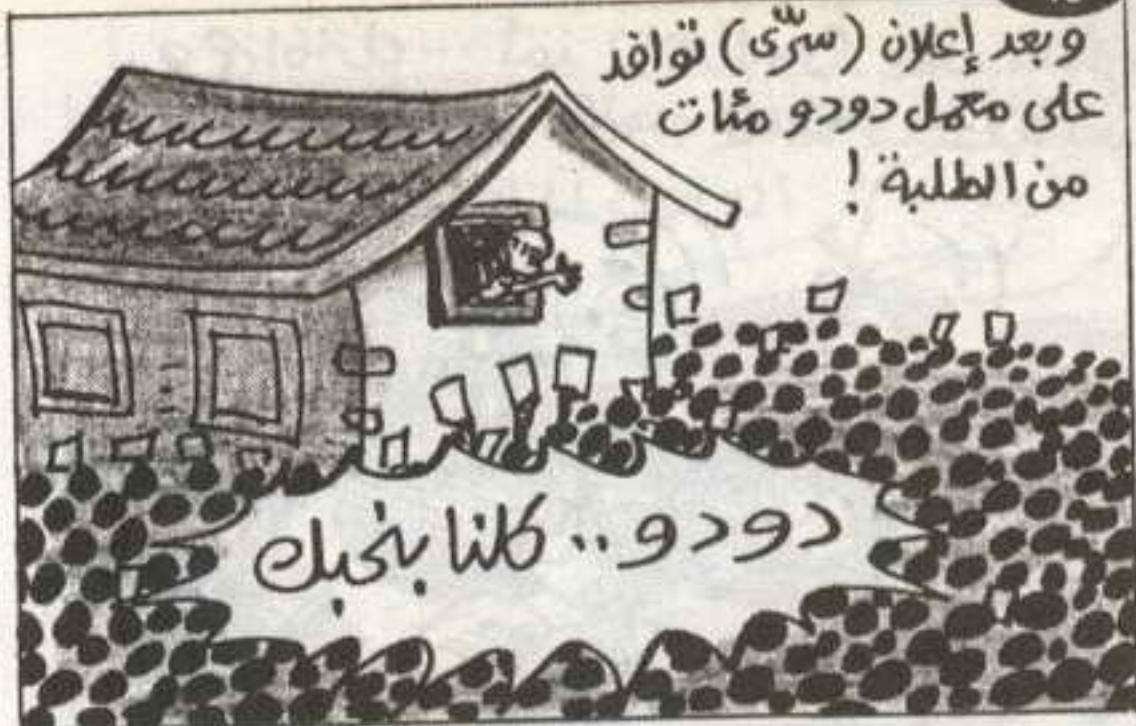 وبعد إعلان (سرّى) توافد
على معمل دودو مئات
من الطلبة !
دودو.. كلنا بنحبك